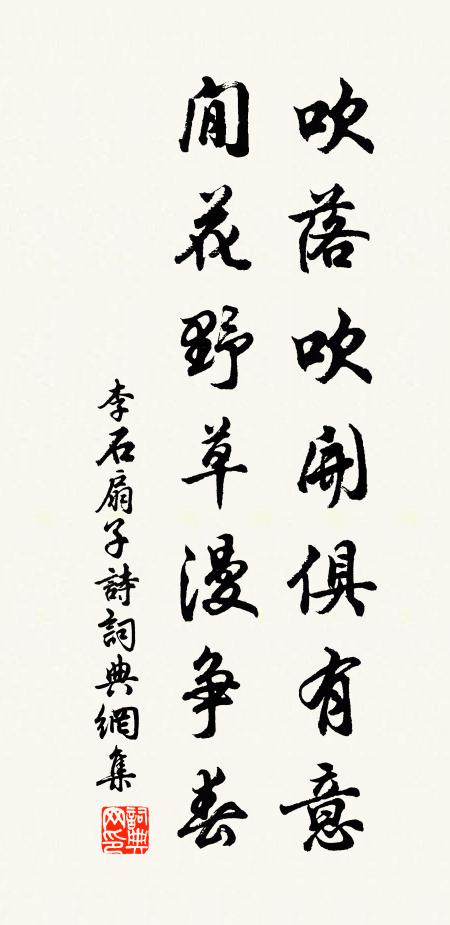 吹落吹開俱有意
閒花野草漫争春
李石扇子詩詞典網集
詞典网印